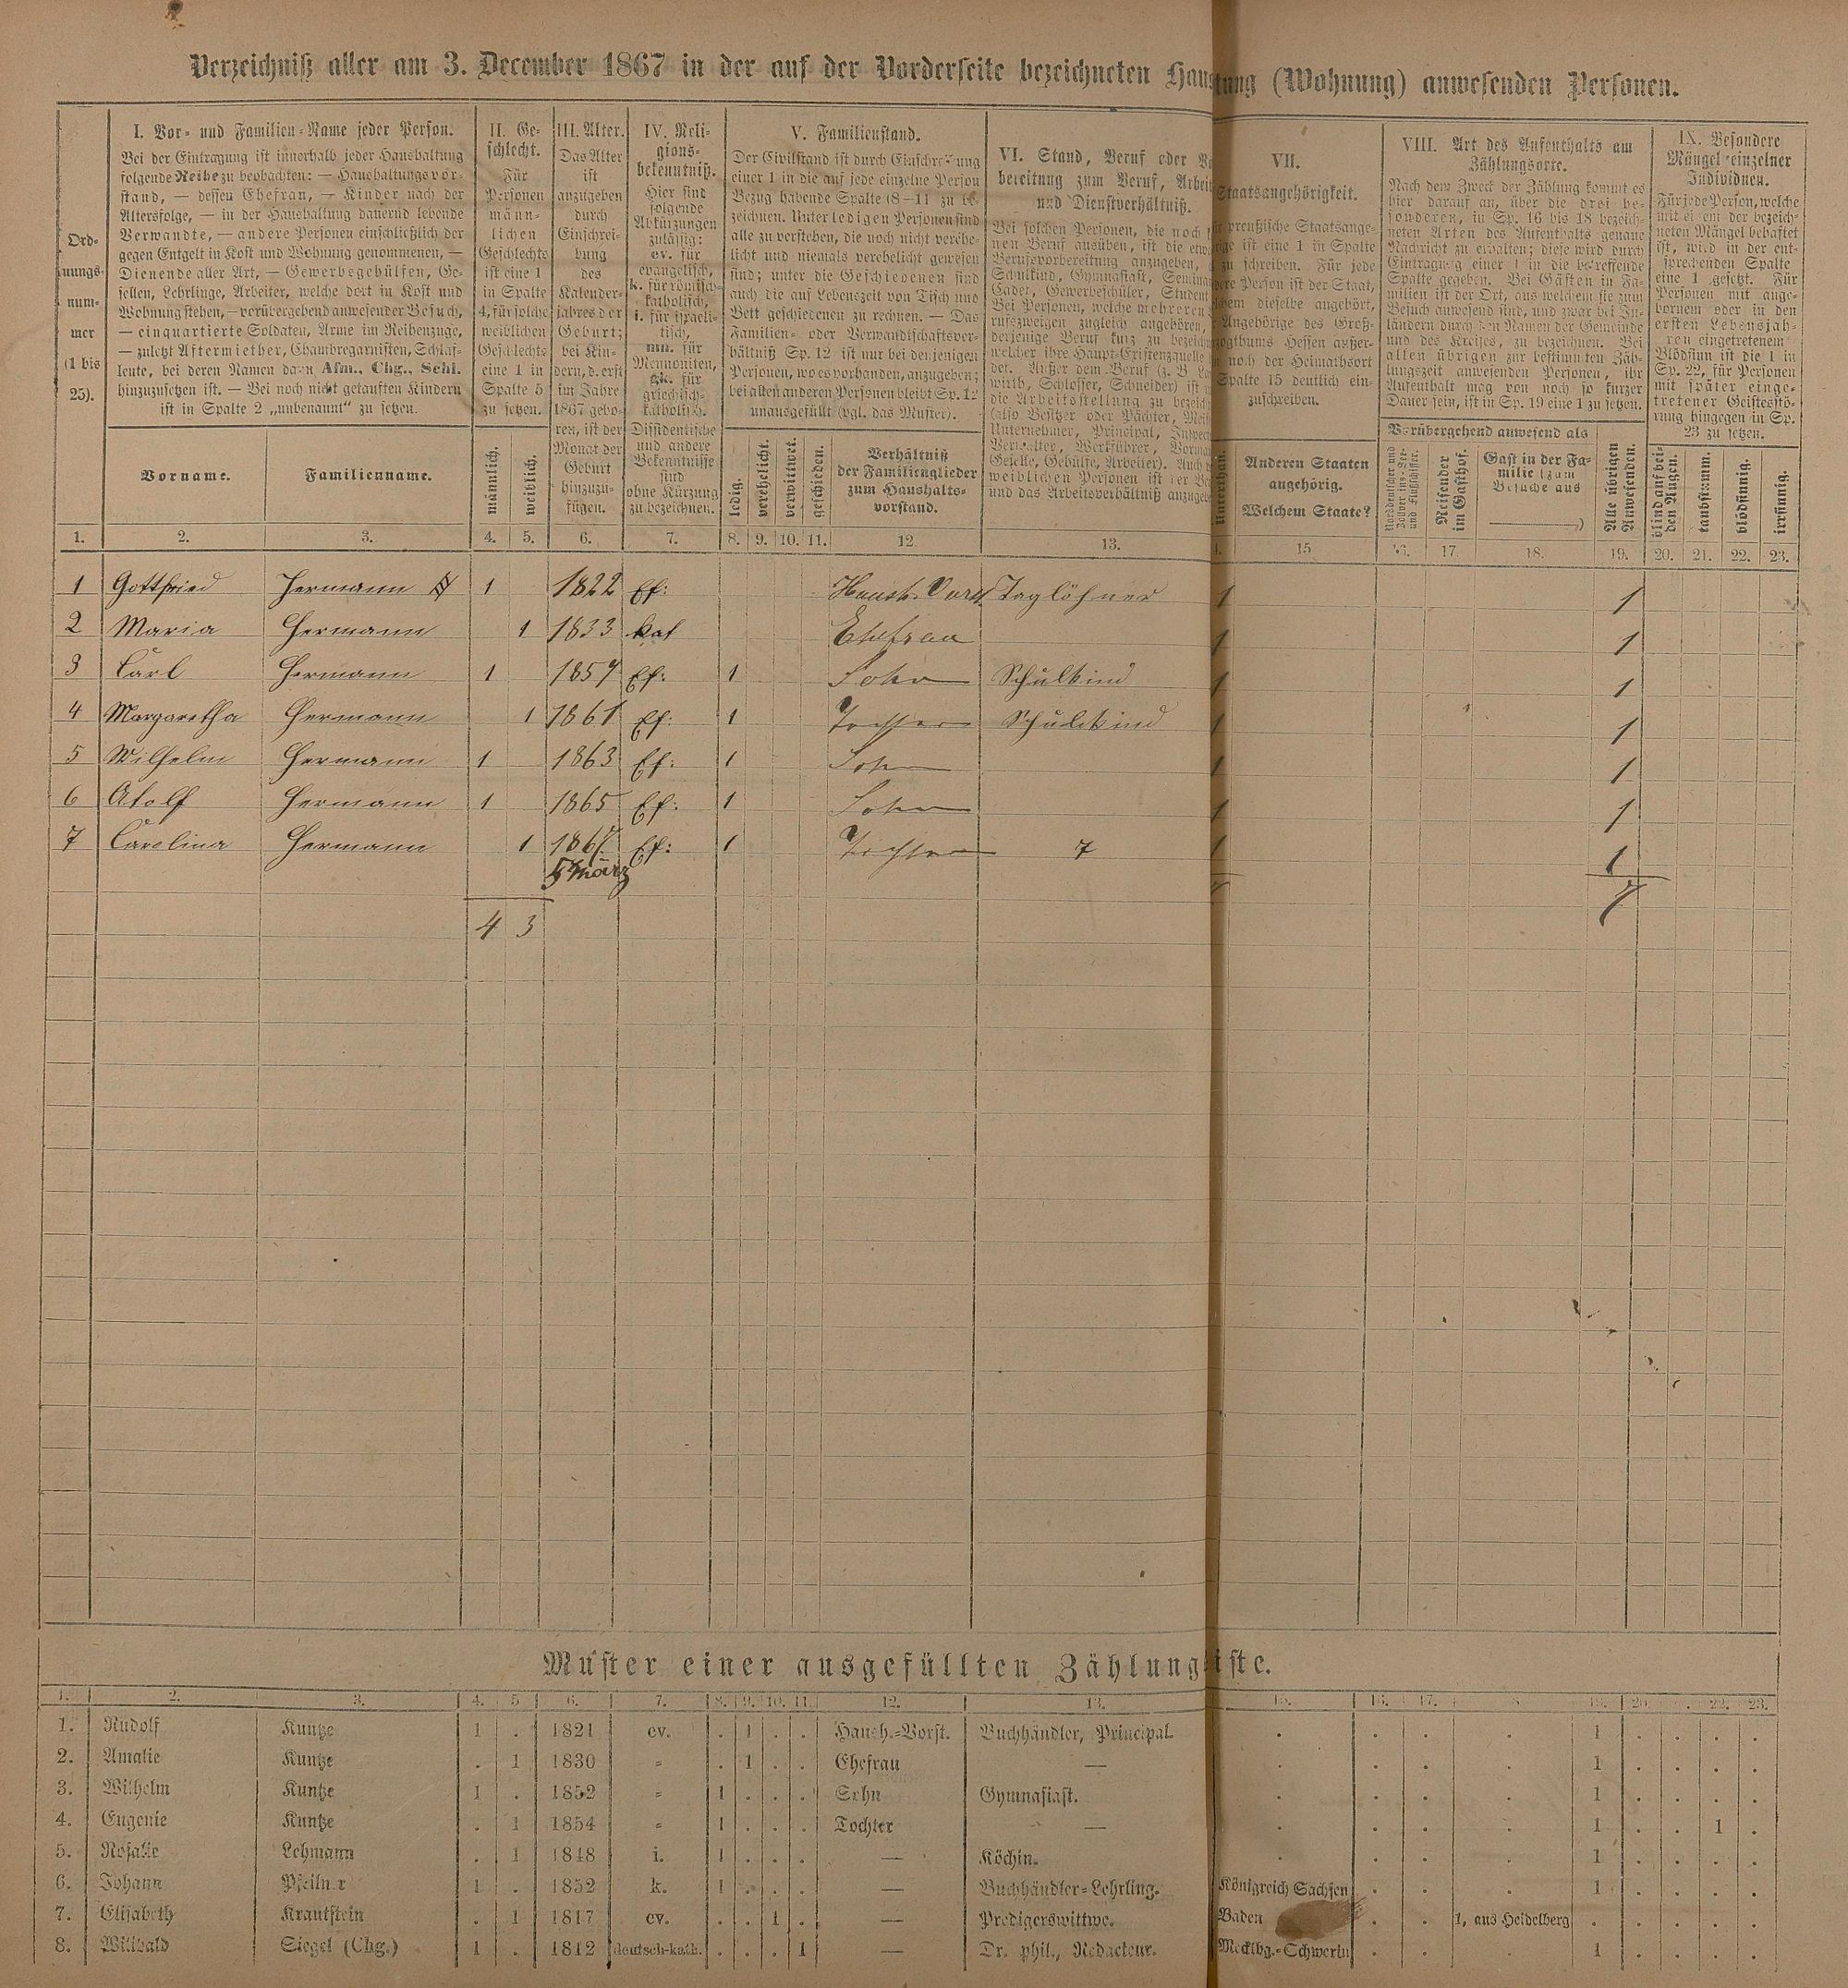 Verzeichniß aller am 3. December 1867 in der auf der Vorderseite bezeichneten Haus tung (Wohnung) anwesenden Personen.
Ord-
nungs-
num-
mer
(1 bis
25).
I. Vor- und Familien-Name jeder Person.
Bei der Eintragung ist innerhalb jeder Haushaltung
folgende Reihe zu beobachten: — Haushaltungsvor-
stand, — dessen Ehefrau, — Kinder nach der
Altersfolge, — in der Haushaltung dauernd lebende
Verwandte, — andere Personen einschließlich der
gegen Entgelt in Kost und Wohnung genommenen, —
Dienende aller Art, — Gewerbegehülfen, Ge-
sellen, Lehrlinge, Arbeiter, welche dort in Kost und
Wohnung stehen, — vorübergehend anwesender Besuch,
— einquartierte Soldaten, Arme im Reihenzuge,
— zuletzt Aftermiether, Chambregarnisten, Schlaf-
leute, bei deren Namen dann Afm., Chg., Schl.
hinzuzusetzen ist. — Bei noch nicht getauften Kindern
ist in Spalte 2 „unbenannt“ zu setzen.
Vorname.
Familienname.
II. Ge-
schlecht.
Für
Personen
männ-
lichen
Geschlechts
ist eine 1
in Spalte
4, für solche
weiblichen
Geschlechts
eine 1 in
Spalte 5
zu setzen.
männlich.
weiblich.
III. Alter.
Das Alter
ist
anzugeben
durch
Einschrei-
bung
des
Kalender-
jahres der
Geburt;
bei Kin-
dern, d. erst
im Jahre
1867 gebo-
ren, ist der
Monat der
Geburt
hinzuzu-
fügen.
IV. Reli-
gions-
bekenntniß.
Hier sind
folgende
Abkürzungen
zulässig:
ev. für
evangelisch,
k. für römisch-
katholisch,
i. für israeli-
tisch,
mn. für
Mennoniten,
gk. für
griechisch-
katholisch.
Dissidentische
und andere
Bekenntnisse
sind
ohne Kürzung
zu bezeichnen.
V. Familienstand.
Der Civilstand ist durch Einschreibung
einer 1 in die auf jede einzelne Person
Bezug habende Spalte (8-11) zu be-
zeichnen. Unter ledigen Personen sind
alle zu verstehen, die noch nicht verehe-
licht und niemals verehelicht gewesen
sind; unter die Geschiedenen sind
auch die auf Lebenszeit von Tisch und
Bett geschiedenen zu rechnen. — Das
Familien- oder Verwandtschaftsver-
hältniß Sp. 12 ist nur bei denjenigen
Personen, wo es vorhanden, anzugeben;
bei allen anderen Personen bleibt Sp. 12
unausgefüllt (vgl. das Muster).
ledig.
verehelicht.
verwittwet.
geschieden.
Verhältniß
der Familienglieder
zum Haushalts-
vorstand.
VI. Stand, Beruf oder
bereitung zum Beruf, Arbeit
und Dienstverhältniß.
Bei solchen Personen, die noch
nen Beruf ausüben, ist die
Berufsvorbereitung anzugeben,
Schulkind, Gymnasiast,
Cadet, Gewerbeschüler, Student
Bei Personen, welche mehreren
rufszweigen zugleich angehören,
derjenige Beruf kurz zu
welcher ihre Haupt-Existenzquelle
det. Außer dem Beruf (z. B.
wirth, Schlosser, Schneider) ist
die Arbeitsstellung zu
(also Besitzer oder Pächter,
Unternehmer, Principal,
Verwalter, Werkführer,
Geselle, Gehülfe, Arbeiter). Auch
weiblichen Personen ist der
und das Arbeitsverhältniß
VII.
Staatsangehörigkeit.
preußische Staatsange-
ist eine 1 in Spalte
zu schreiben. Für jede
Person ist der Staat,
dieselbe angehört,
Angehörige des Groß-
Hessen außer-
noch der Heimathsort
Spalte 15 deutlich ein-
zuschreiben.
Anderen Staaten
angehörig.
Welchem Staate?
VIII. Art des Aufenthalts am
Zählungsorte.
Nach dem Zweck der Zählung kommt es
hier darauf an, über die drei be-
sonderen, in Sp. 16 bis 18 bezeich-
neten Arten des Aufenthalts genaue
Nachricht zu erhalten; diese wird durch
Eintragung einer 1 in die betreffende
Spalte gegeben. Bei Gästen in Fa-
milien ist der Ort, aus welchem sie zum
Besuch anwesend sind, und zwar bei In-
ländern durch den Namen der Gemeinde
und des Kreises, zu bezeichnen. Bei
allen übrigen zur bestimmten Zäh-
lungszeit anwesenden Personen, ihr
Aufenthalt mag von noch so kurzer
Dauer sein, ist in Sp. 19 eine 1 zu setzen.
Vorübergehend anwesend als
Reisender
im Gasthof.
Gast in der Fa-
milie (zum
Besuche aus
)
Alle übrigen
Anwesenden.
IX. Besondere
Mängel einzelner
Individuen.
Für jede Person, welche
mit einem der bezeich-
neten Mängel behaftet
ist, wird in der ent-
sprechenden Spalte
eine 1 gesetzt. Für
Personen mit ange-
bornem oder in den
ersten Lebensjah-
ren eingetretenem
Blödsinn ist die 1 in
Sp. 22, für Personen
mit später einge-
tretener Geistesstö-
rung hingegen in Sp.
23 zu setzen.
blind auf bei-
den Augen.
taubstumm.
blödsinnig.
irrsinnig.
1. 2. 3. 4. 5. 6. 7. 8. 9. 10. 11. 12. 13. 15 16. 17. 18. 19. 20. 21. 22. 23.
1 Gottfried Hermann 1 1822 Ef: Haush. Vorst Taglöhner 1 1
2 Maria Hermann 1 1833 kat Ehefrau 1 1
3 Carl Hermann 1 1857 Ef: 1 Sohn Schulkind 1 1
4 Margaretha Hermann 1 1861 Ef: 1 Tochter Schulkind 1 1
5 Wilhelm Hermann 1 1863 Ef: 1 Sohn 1 1
6 Atolf Hermann 1 1865 Ef: 1 Sohn 1 1
7 Carolina Hermann 1 1867 Ef: 1 Tochter 7 1 1
5 März
7
4 3
Muster einer ausgefüllten Zählung iste.
1. 2. 3. 4. 5 6. 7. 8. 9. 10. 11. 12. 13. 15. 16. 17. 19. 20. 22. 23.
1. Rudolf Kuntze 1 . 1821 ev. . 1 . . Haush.-Vorst. Buchhändler, Principal. . . . . 1 . . . .
2. Amalie Kuntze . 1 1830 = . 1 . . Ehefrau — . . . . 1 . . . .
3. Wilhelm Kuntze 1 . 1852 = 1 . . . Sohn Gymnasiast. . . . . 1 . . . .
4. Eugenie Kuntze . 1 1854 = 1 . . . Tochter — . . . . 1 . . 1 .
5. Rosalie Lehmann . 1 1848 i. 1 . . . — Köchin. . . . . 1 . . . .
6. Johann Pfeilner 1 . 1852 k. 1 . . . — Buchhändler-Lehrling. Königreich Sachsen . . . 1 . . . .
7. Elisabeth Krautstein . 1 1817 ev. . . 1 . — Predigerswittwe. Baden . . 1, aus Heidelberg . . . . .
8. Willibald Siegel (Chg.) 1 . 1812 deutsch-kath. . . . 1 — Dr. phil., Redacteur. Mecklbg.-Schwerin . . . 1 . . . .